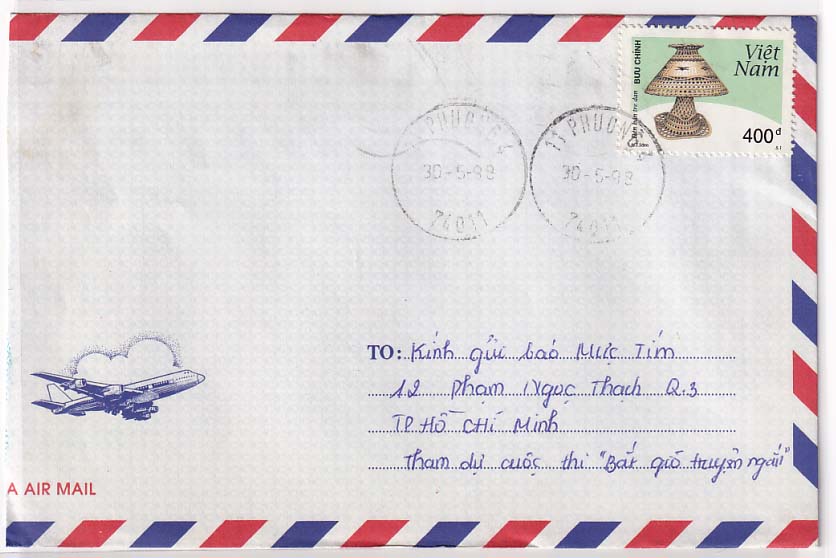 Việt
Nam
BƯU CHÍNH
Đèn bàn tre đan
400đ
PHUONG 4
30-5-98
74011
11 PHUONG 4
30-5-98
74011
TO: Kính gửi báo Mực Tím
12 Phạm Ngọc Thạch Q.3
TP Hồ CHÍ Minh
Tham dự cuộc thi "Bắt giò truyện ngắn"
A AIR MAIL